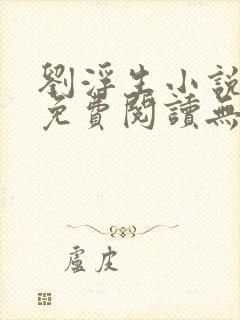 劉浮生小說
免費閱讀無
盧皮